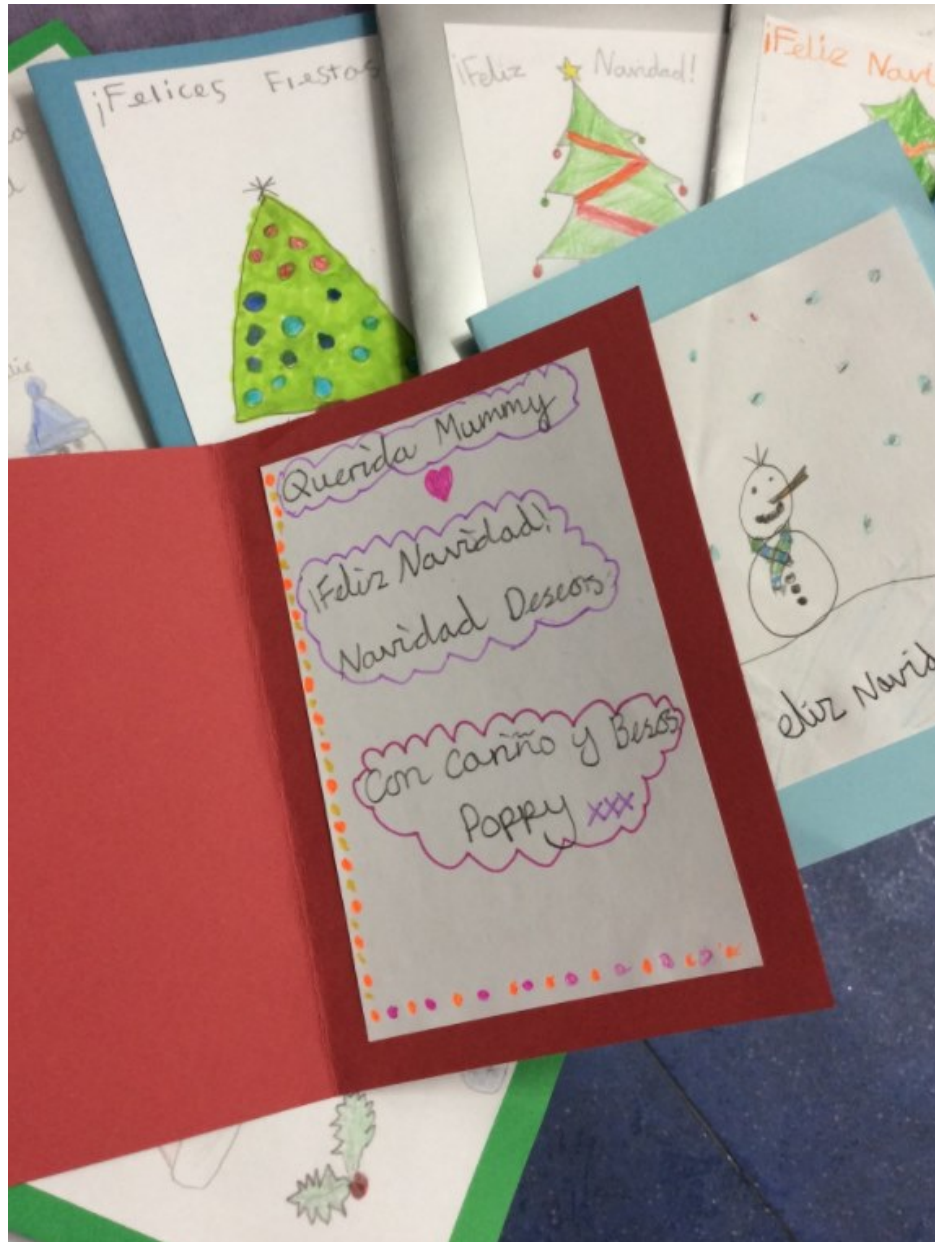 ¡Felices Fiestas
¡Feliz Navidad!
¡Feliz Navi
Querida Mummy
¡Feliz Navidad!
Navidad Deseos
Con Cariño y Besos
Poppy xxx
eliz Navid